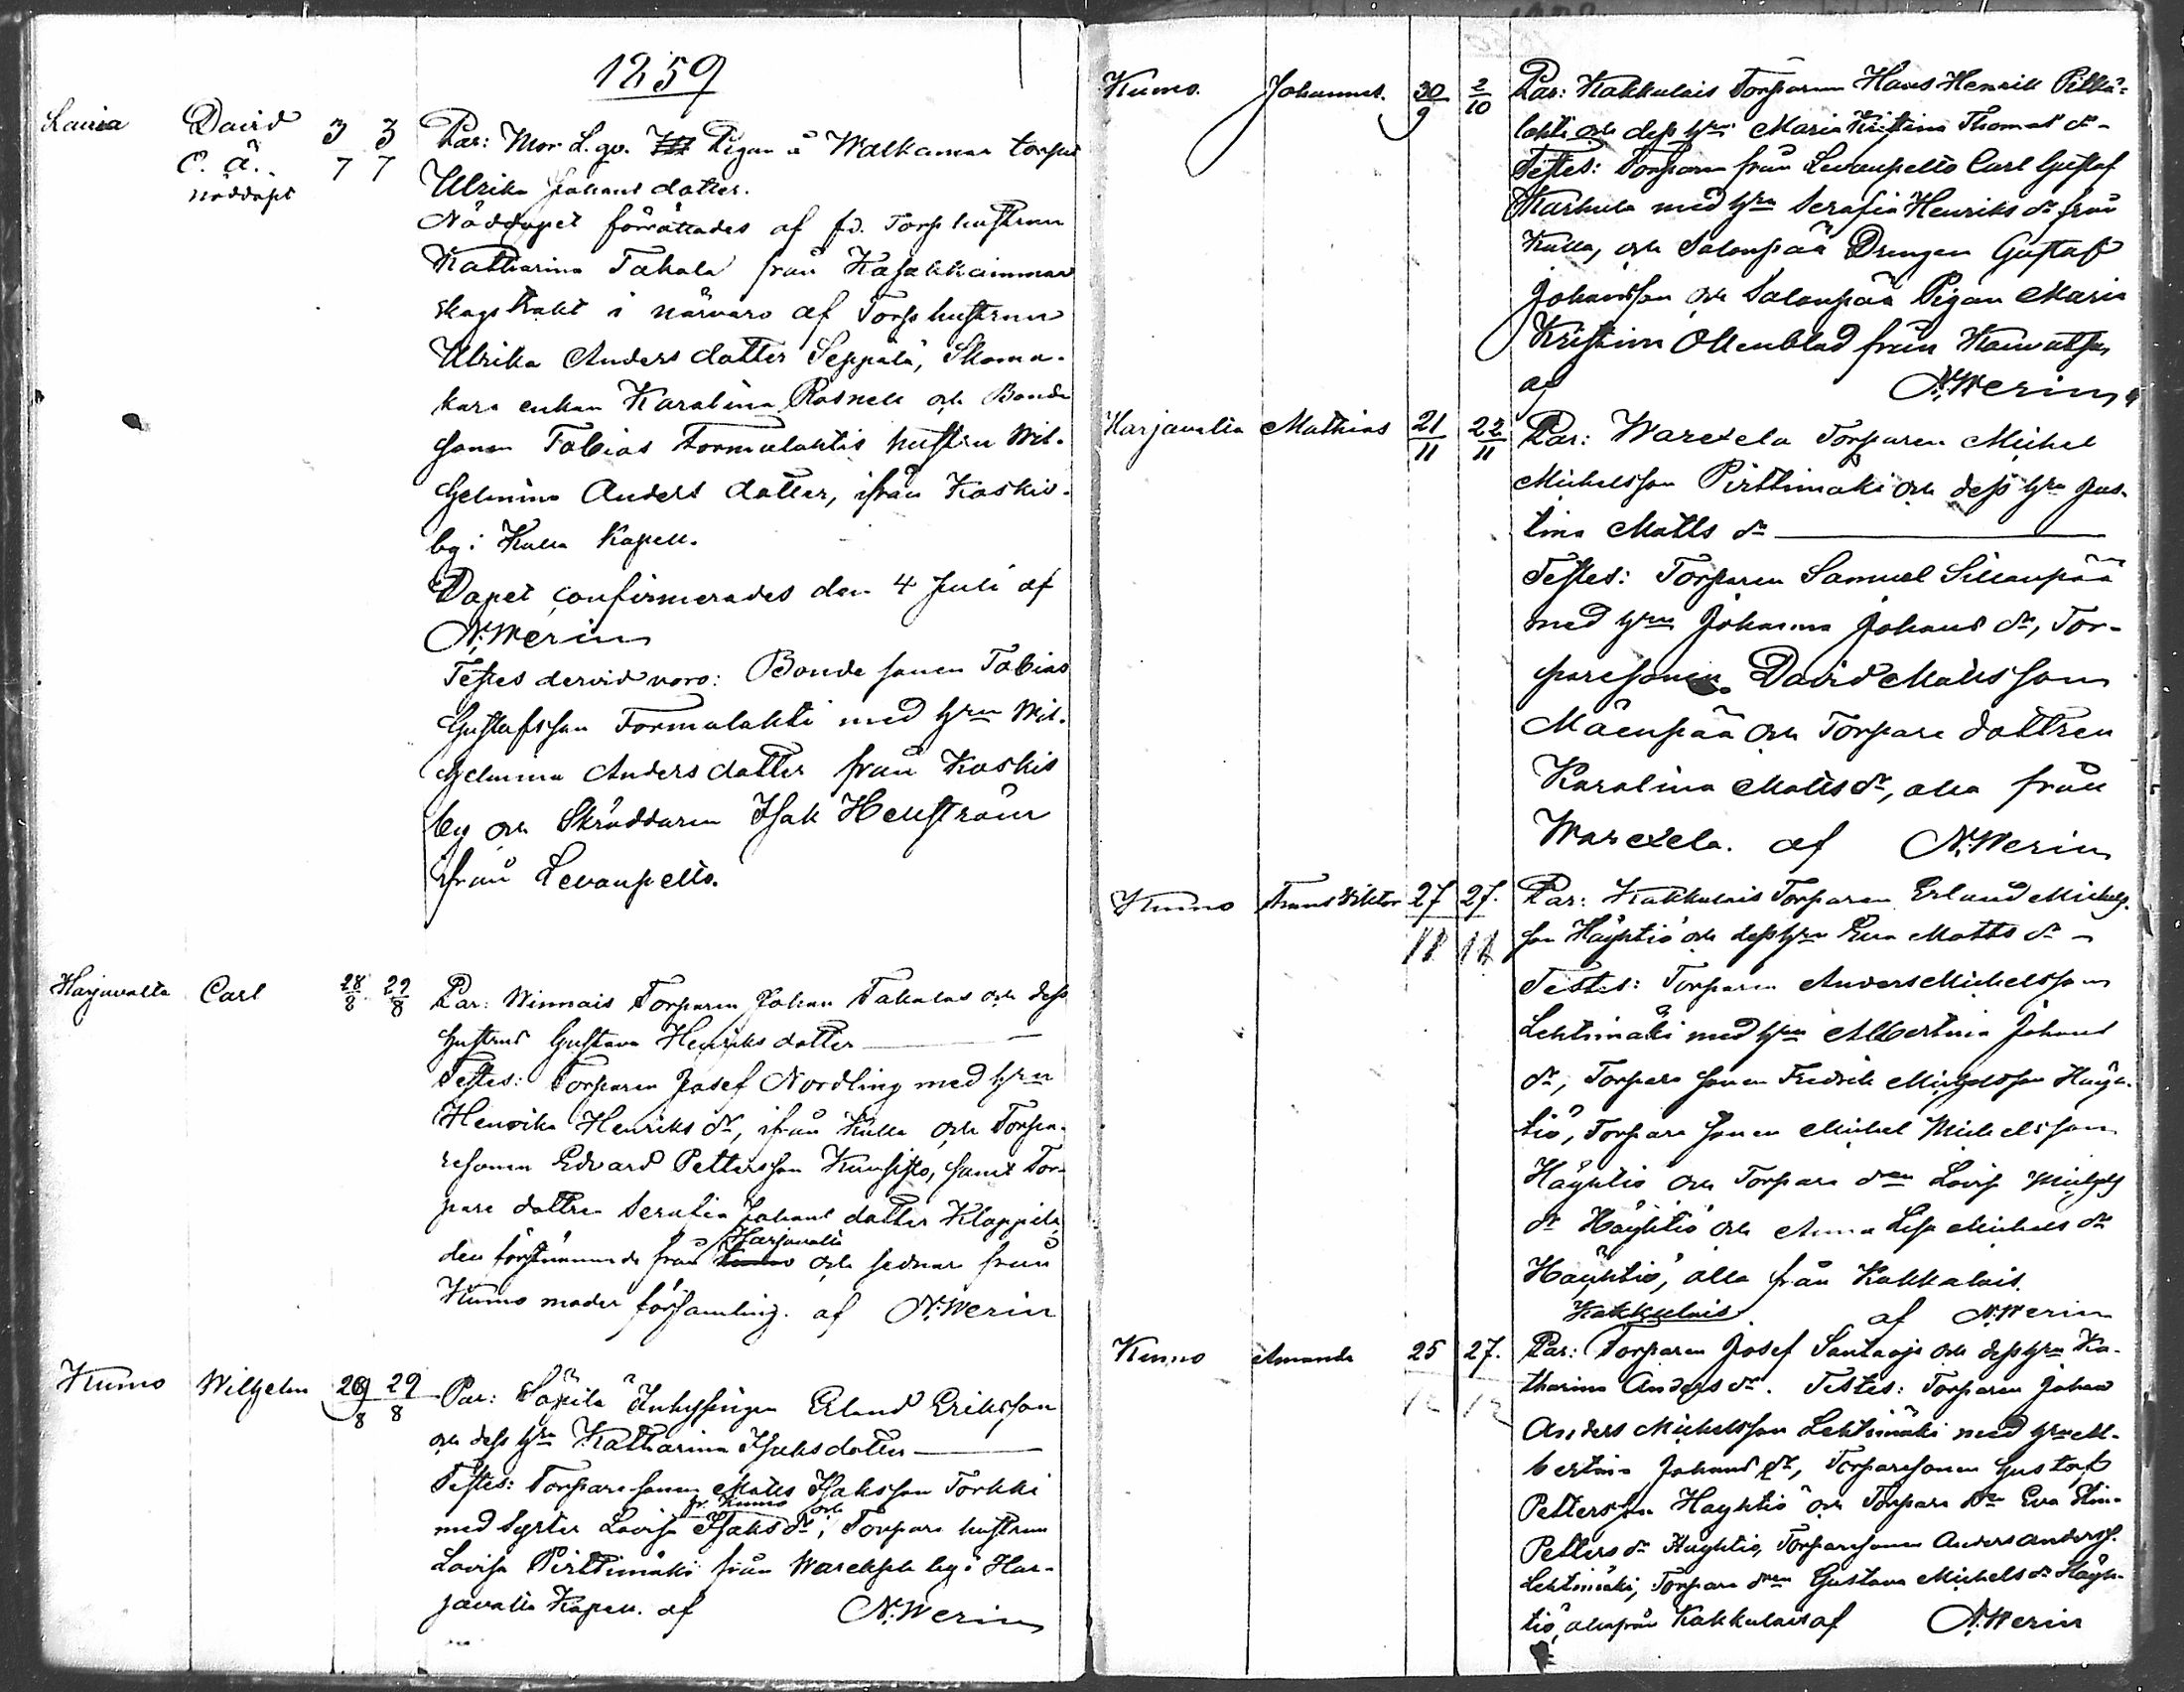 1859
Lavia David 3/7 3/7 Par: Mor L. qv. Pigan å Walkamar torpet
O. ä. Ulrika Johans dotter.
Nöddöpt
Nöddopet förrättades af fd. Torp hustrun
Katharina Takala från Kasakkammar
skogstrakt i närvaro af Torp hustrun
Ulrika Anders dotter Seppälä, Skoma-
kare enkan Karolina Rosnell och Bonde
sonen Tobias Formulahtis hustru Wil-
helmina Anders dotter, ifrån Koskis
by i Kulla Kapell.
Dopet confirmerades den 4 Juli af
N. Werin
Testes dervid voro: Bonde sonen Tobias
Gustafsson Formulahti med hru Wil-
helmina Anders dotter från Koskis
by och Skräddaren Isak Hellström
ifrån Levanpelto.
Harjavalta Carl 28/8 29/8 Par: Winnais Torparen Johan Takalas och dess
hustrus Gustava Henriks dotter
Testes: Torparen Josef Nordling med hru
Henrika Henriks dr, ifrån Kulla och Torpa-
resonen Edvard Pettersson Kuusisto, samt Tor-
pare dottren Serafia Johans dotter Klappila
den förstnämnde från Kumo Harjavalta och sednare från
Kumo moder församling. af N. Werin
Kumo Wilhelm 28/8 29/8 Par: Säpilä Inhysingen Erland Eriksson
och dess hru Katharina Isaks dotter
Testes: Torparesonen Matts Isaksson Torkki
med syster Lovisa Isaks dr fr. Kumo och Torpare hustrun
Lovisa Pirttimäki från Warekselä by i Har-
javalta Kapell. af N. Werin
Kumo. Johannes. 30/9 2/10 Par: Kakkulais Torparen Hans Henrik Pitkä-
lahti och dess hru Maria Kristina Thomas dr
Testes: Torparen från Levanpelto Carl Gustaf
Markula med hru Serafia Henriks dr från
Kulla, och Salonpää Drengen Gustaf
Johansson och Salonpää Pigan Maria
Kristina Ollenblad från Kauvatsa
af N. Werin
Harjavalta Mathias 21/11 22/11 Par: Warexela Torparen Michel
Michelsson Pirttimäki och dess hru Jus-
tina Matts dr
Testes: Torparen Samuel Sillanpää
med hru Johanna Johans dr, Tor-
paresonen David Matsson
Mäenpää och Torpare dottren
Karolina Matts dr, alla från
Warexela. af N. Werin
Kumo Frans Viktor 27/11 27/11 Par: Kakkulais Torparen Erland Michels-
son Häyhtiö och dess hru Eva Matts dr
Testes: Torparen Anders Michelsson
Lehtimäki med hru Albertina Johans
dr, Torpare sonen Fredrik Michelsson Häyh-
tiö, Torpare sonen Michel Michelsson
Häyhtiö och Torpare dren Lovisa Michels
dr Häyhtiö och Anna Lisa Michels dr
Häyhtiö, alla från Kakkulais.
af N. Werin
Kakkulais
Kumo Amanda 25/12 27/12 Par: Torparen Josef Santaoja och dess hru Ka-
tharina Anders dr. Testes: Torparen Johan
Anders Michelsson Lehtimäki med hru Al-
bertina Johans dr, Torparesonen Gustaf
Pettersson Häyhtiö och Torpare dr Eva Stina
Petters dr Häyhtiö, Torparesonen Anders Anderss.
Lehtimäki, Torpare dren Gustava Michels dr Häyh-
tiö, alla från Kakkulais af N. Werin